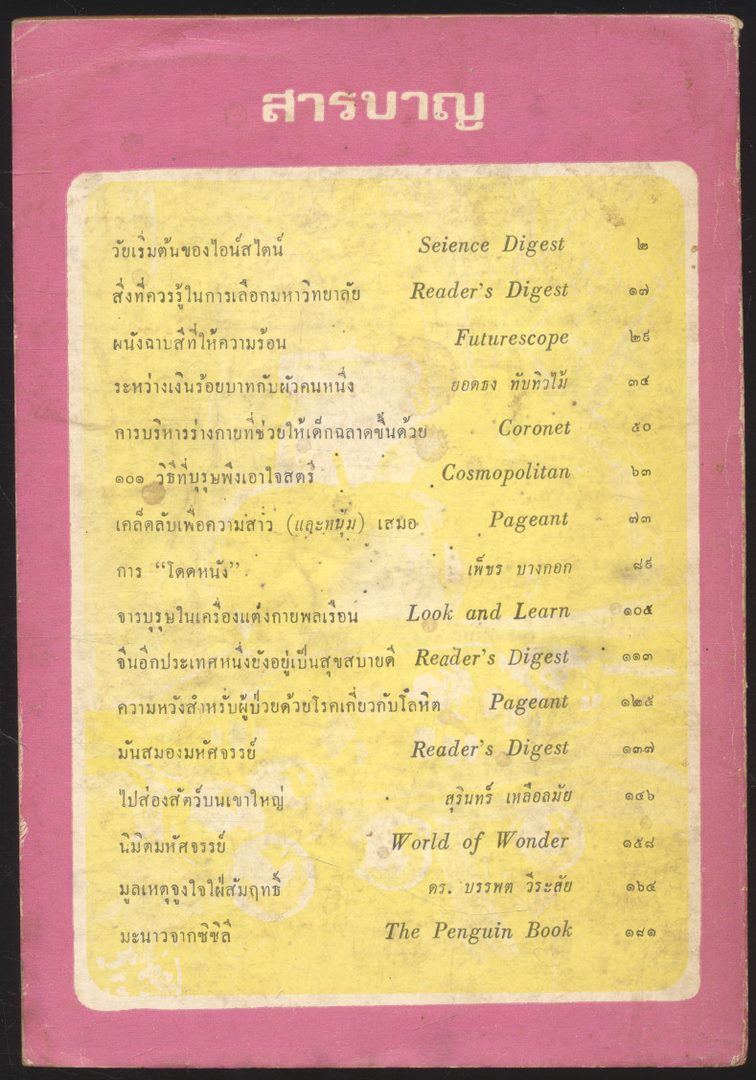 สารบาญ
วัยเริ่มต้นของไอน์สไตน์ Seience Digest ๒
สิ่งที่ควรรู้ในการเลือกมหาวิทยาลัย Reader's Digest ๑๗
ผนังฉาบสีที่ให้ความร้อน Futurescope ๒๙
ระหว่างเงินร้อยบาทกับผัวคนหนึ่ง ยอดธง ทับทิวไม้ ๓๔
การบริหารร่างกายที่ช่วยให้เด็กฉลาดขึ้นด้วย Coronet ๕๐
๑๐๑ วิธีที่บุรุษพึงเอาใจสตรี Cosmopolitan ๖๓
เคล็ดลับเพื่อความสาว (และหนุ่ม) เสมอ Pageant ๗๓
การ “โดดหนัง” เพ็ชร บางกอก ๘๙
จารบุรุษในเครื่องแต่งกายพลเรือน Look and Learn ๑๐๕
จีนอีกประเทศหนึ่งยังอยู่เป็นสุขสบายดี Reader's Digest ๑๑๓
ความหวังสำหรับผู้ป่วยด้วยโรคเกี่ยวกับโลหิต Pageant ๑๒๕
มันสมองมหัศจรรย์ Reader's Digest ๑๓๗
ไปส่องสัตว์บนเขาใหญ่ สุรินทร์ เหลือลมัย ๑๔๖
นิมิตมหัศจรรย์ World of Wonder ๑๕๘
มูลเหตุจูงใจใฝ่สัมฤทธิ์ ดร. บรรพต วีระสัย ๑๖๔
มะนาวจากซิซิลี The Penguin Book ๑๘๑